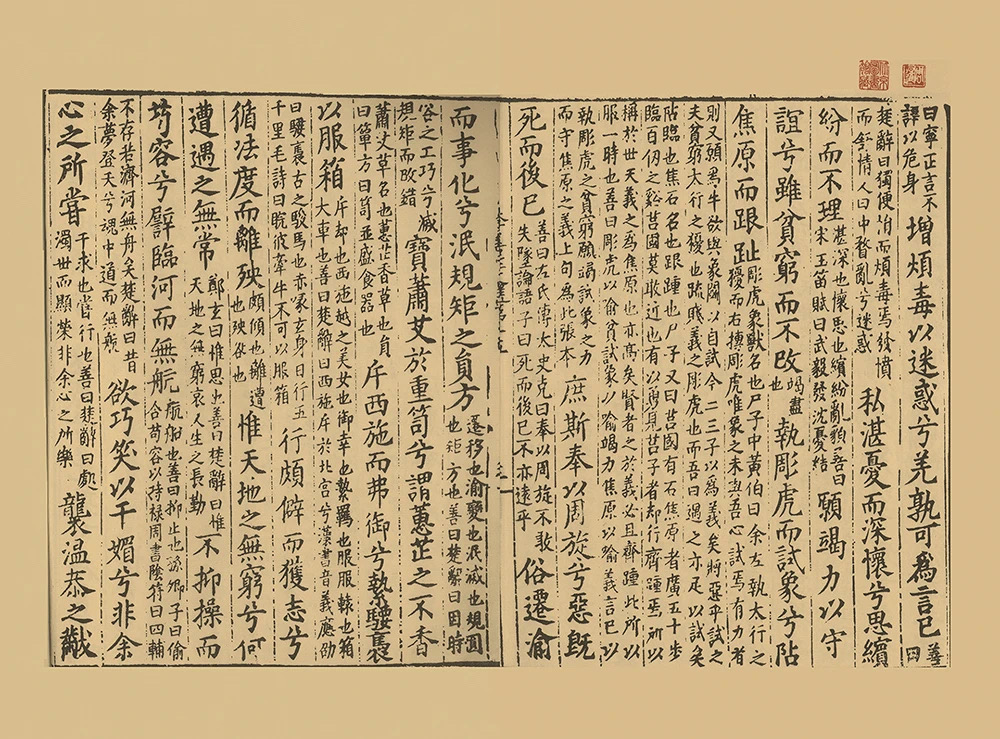 曰寧正言不諱以危身增煩毒以迷惑兮羌孰可爲言己善
楚辭曰獨便悁而煩毒焉發憤而舒情人曰中瞀亂兮迷惑私湛憂而深懷兮思繽
紛而不理湛深也懷思也繽紛亂貌善曰宋玉笛賦曰武毅發沈憂結願竭力以守
誼兮雖貧窮而不改竭盡也執彫虎而試象兮阽
焦原而跟趾彫虎象獸名也尸子中黃伯曰余左執太行之獶而右搏彫虎唯象之未與吾心試焉有力者
則又願爲牛欲與象鬬以自試今二三子以爲義矣將惡乎試之夫貧窮太行之獶也疏賤義之彫虎也而吾日遇之亦足以試矣
阽臨也焦石名也跟踵也尸子又曰莒國有石焦原者廣五十步臨百仞之谿莒國莫敢近也有以勇見莒子者却行齊踵焉所以
稱於世夫義之爲焦原也亦高矣賢者之於義必且齊踵此所以服一時也善曰彫虎以喻貧試象以喻竭力焦原以喻義言已以
執彫虎之貧窮願竭試象之力而守焦原之義上句爲此張本庶斯奉以周旋兮惡既
死而後已善曰左氏傳太史克曰奉以周旋不敢失墜論語子曰死而後已不亦遠乎俗遷渝
而事化兮泯規矩之員方遷移也渝變也泯滅也規圓也矩方也善曰楚辭曰固時
俗之工巧兮滅規矩而改錯寶蕭艾於重笥兮謂蕙芷之不香
蕭艾草名也蕙芷香草也員曰簞方曰笥並盛食器也斥西施而弗御兮縶騕褭
以服箱斥却也西施越之美女也御幸也縶羈也服服轅也箱大車也善曰楚辭曰西施斥於北宮兮漢書音義應劭
曰騕褭古之駿馬也赤喙玄身日行五千里毛詩曰睆彼牽牛不可以服箱行頗僻而獲志兮
循法度而離殃頗傾也離遭也殃咎也惟天地之無窮兮何
遭遇之無常鄭玄曰惟思也善曰楚辭曰惟天地之無窮哀人生之長勤不抑操而
苟容兮譬臨河而無航航船也善曰抑止也孫卿子曰偷合苟容以持祿周書陰符曰四輔
不存若濟河無舟矣楚辭曰昔余夢登天兮魂中道而無航欲巧笑以干媚兮非余
心之所嘗干求也嘗行也善曰楚辭曰處濁世而顯榮非余心之所樂襲溫恭之黻